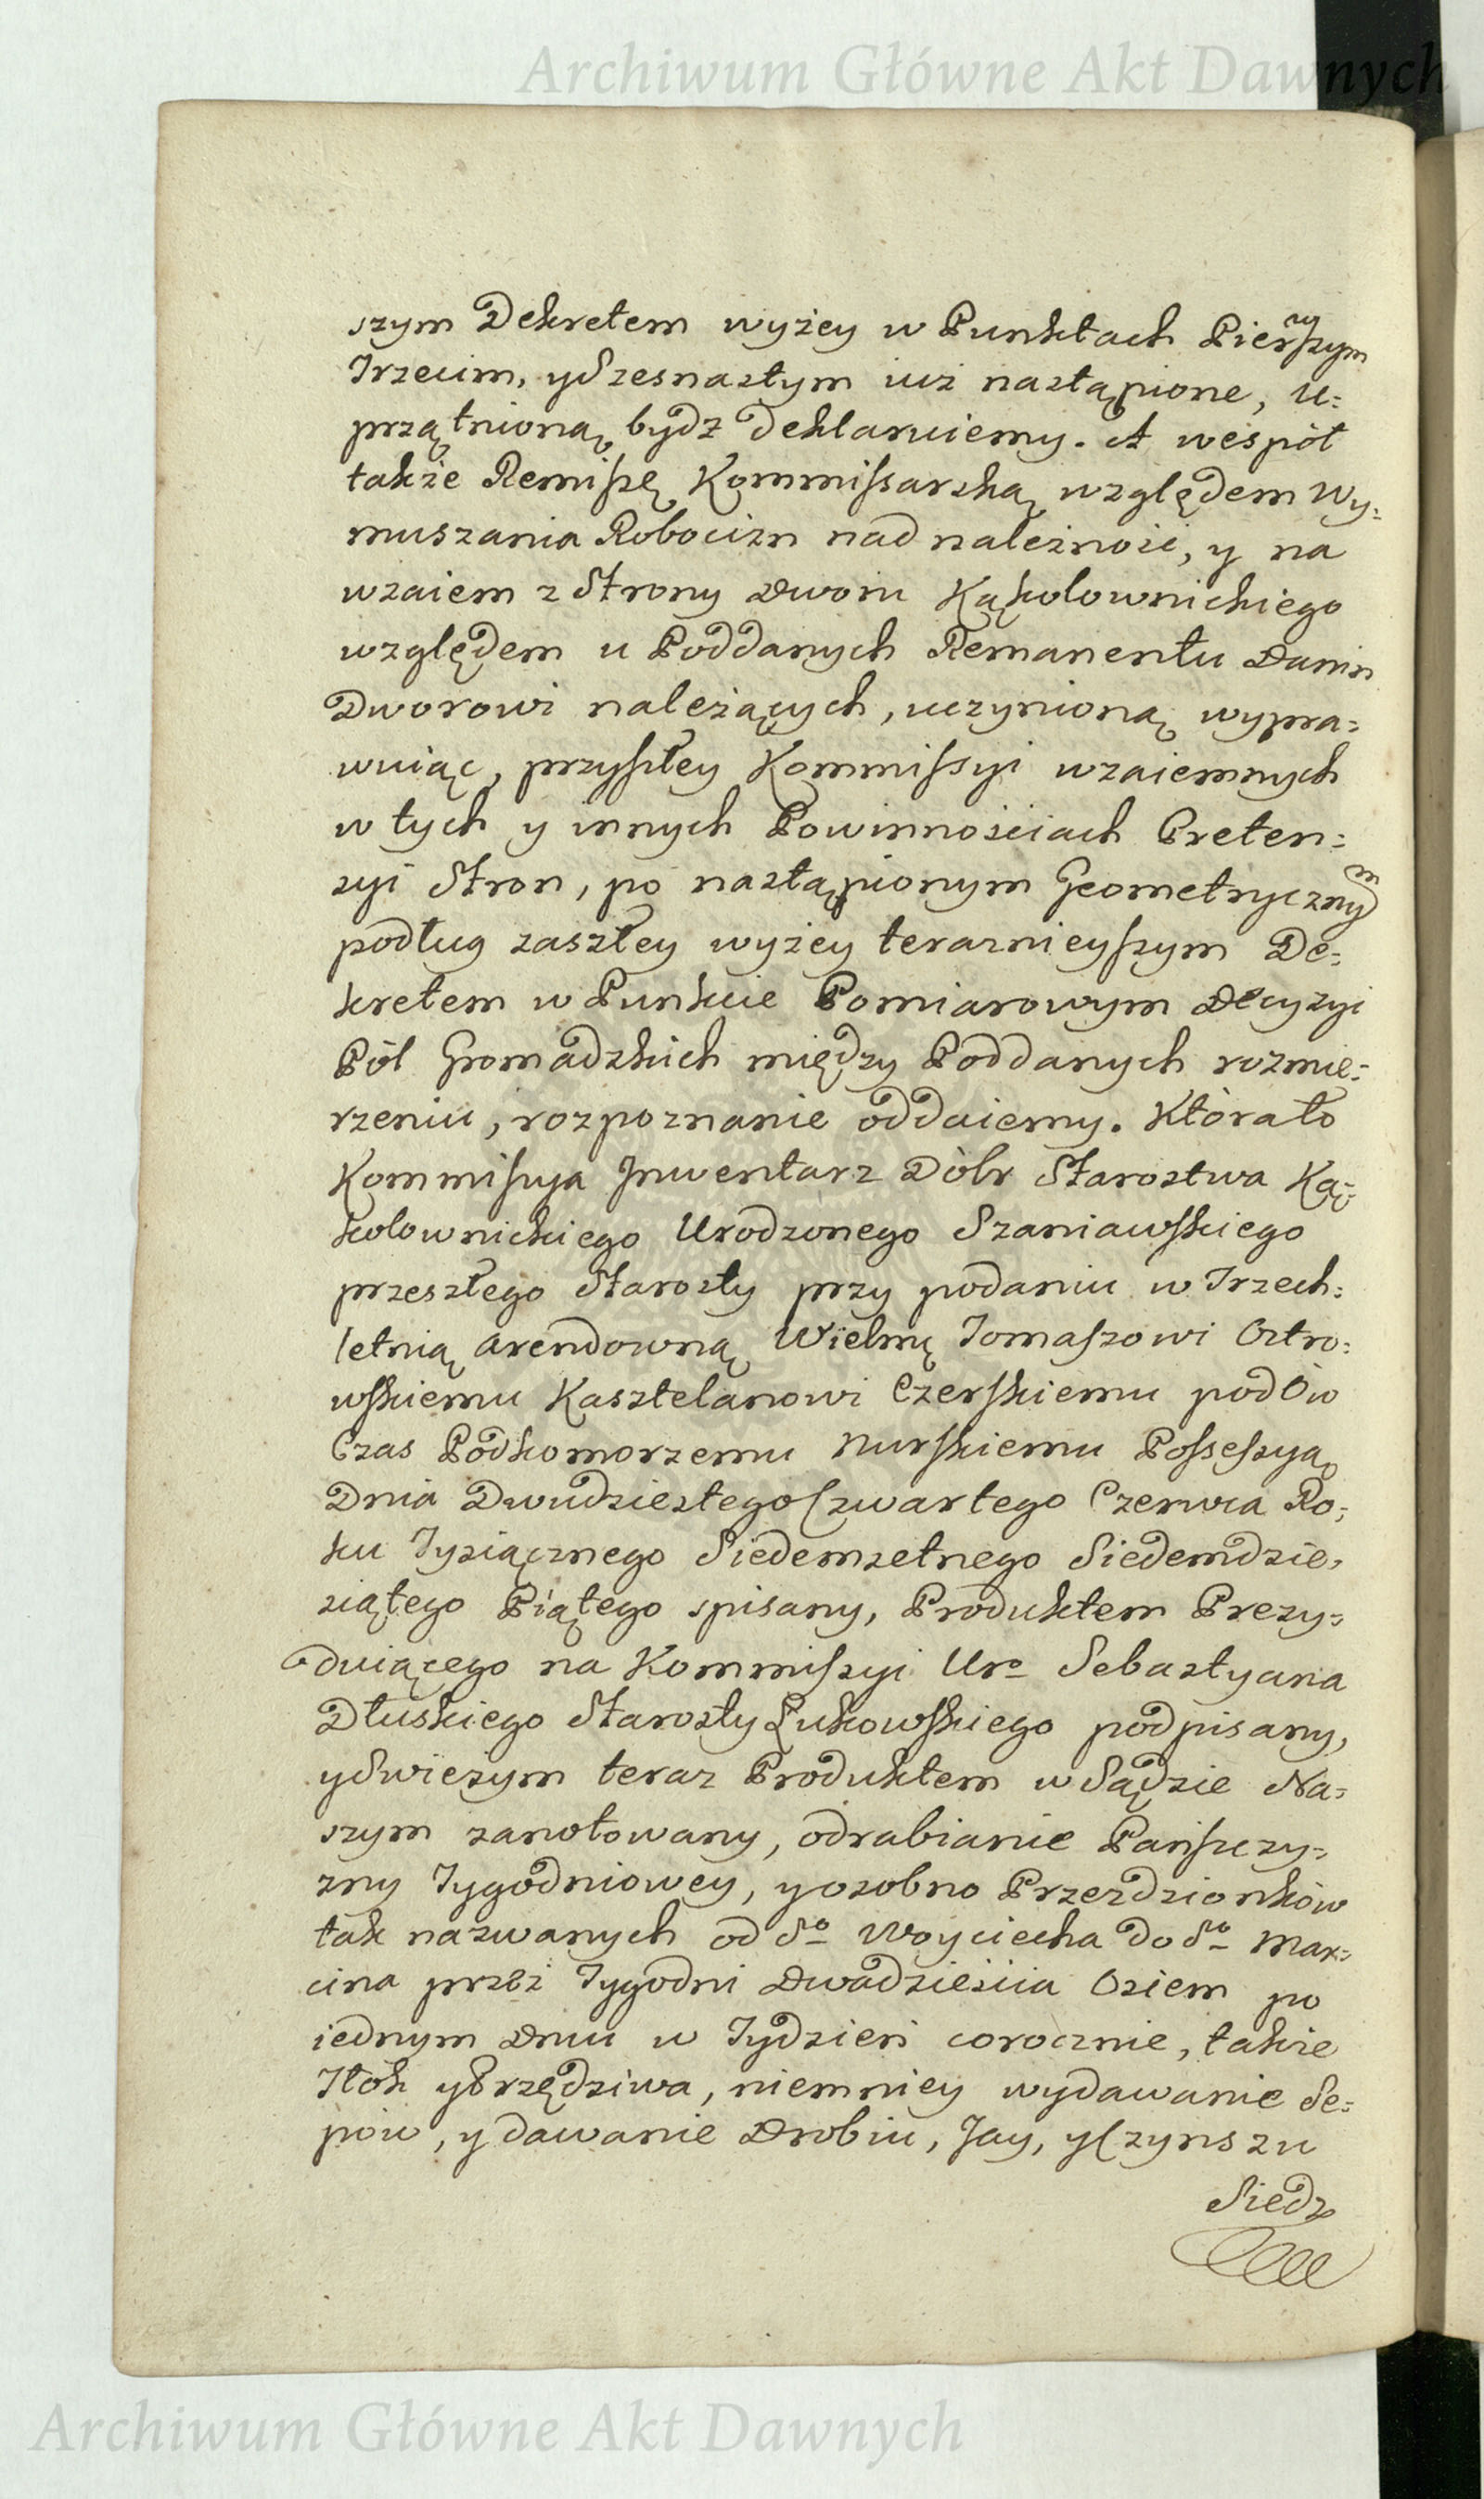 Archiwum Główne Akt Dawnych
szym Dekretem wyżey w Punktach Pierwszym
Trzecim, y Szesnastym iuż nastąpione, u=
przątnioną bydź deklaruiemy. A wespół
także Remissę Kommissarską względem Wy=
muszania Robocizn nad należność, y na
wzaiem z Strony Dworu Kąkolownickiego
względem u Poddanych Remanentu Danin
Dworowi należących, uczynioną wypra=
wuiąc, przyszłey Kommissyi wzaiemnych
w tych y innych Powinnościach Preten=
syi Stron, po nastąpionym Geometrycznym
podług zaszłey wyżey teraznieyszym De=
kretem w Punkcie Pomiarowym Decyzyi
Pól Gromadzkich między Poddanych rozmie=
rzeniu, rozpoznanie oddaiemy. Która to
Kommissya Inwentarz Dóbr Starostwa Ką=
kolownickiego Urodzonego Szaniawskiego
przeszłego Starosty przy podaniu w Trzech=
letnią arendowną Wielmu Tomaszowi Ostro=
wskiemu Kasztelanowi Czerskiemu pod ów
Czas Podkomorzemu Nurskiemu Possessyą
Dnia Dwudziestego Czwartego Czerwca Ro=
ku Tysiącznego Siedemsetnego Siedemdzie=
siątego Piątego spisany, Produktem Prezy=
duiącego na Kommissyi Uro Sebastyana
Dłuskiego Starosty Łukowskiego podpisany,
y Swieżym teraz Produktem w Sądzie Na=
szym zanotowany, odrabianie Pańszczy=
zny Tygodniowey, y osobno Przezdzionków
tak nazwanych od So Woyciecha do So Mar=
cina przez Tygodni Dwadzieścia Osiem po
iednym Dniu w Tydzień corocznie, także
Tłók y Przędziwa, niemniey wydawanie Se=
pów, y dawanie Drobiu, Jay, y Czynszu
Siedz
Archiwum Główne Akt Dawnych